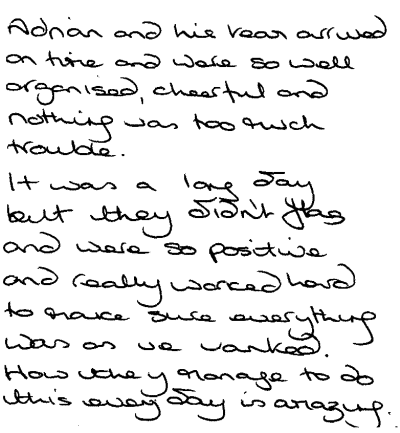 Adrian and his team arrived
on time and were so well
organised, cheerful and
nothing was too much
trouble.
It was a long day
but they didn't flag
and were so positive
and really worked hard
to make sure everything
was as we wanted.
How they manage to do
this every day is amazing.